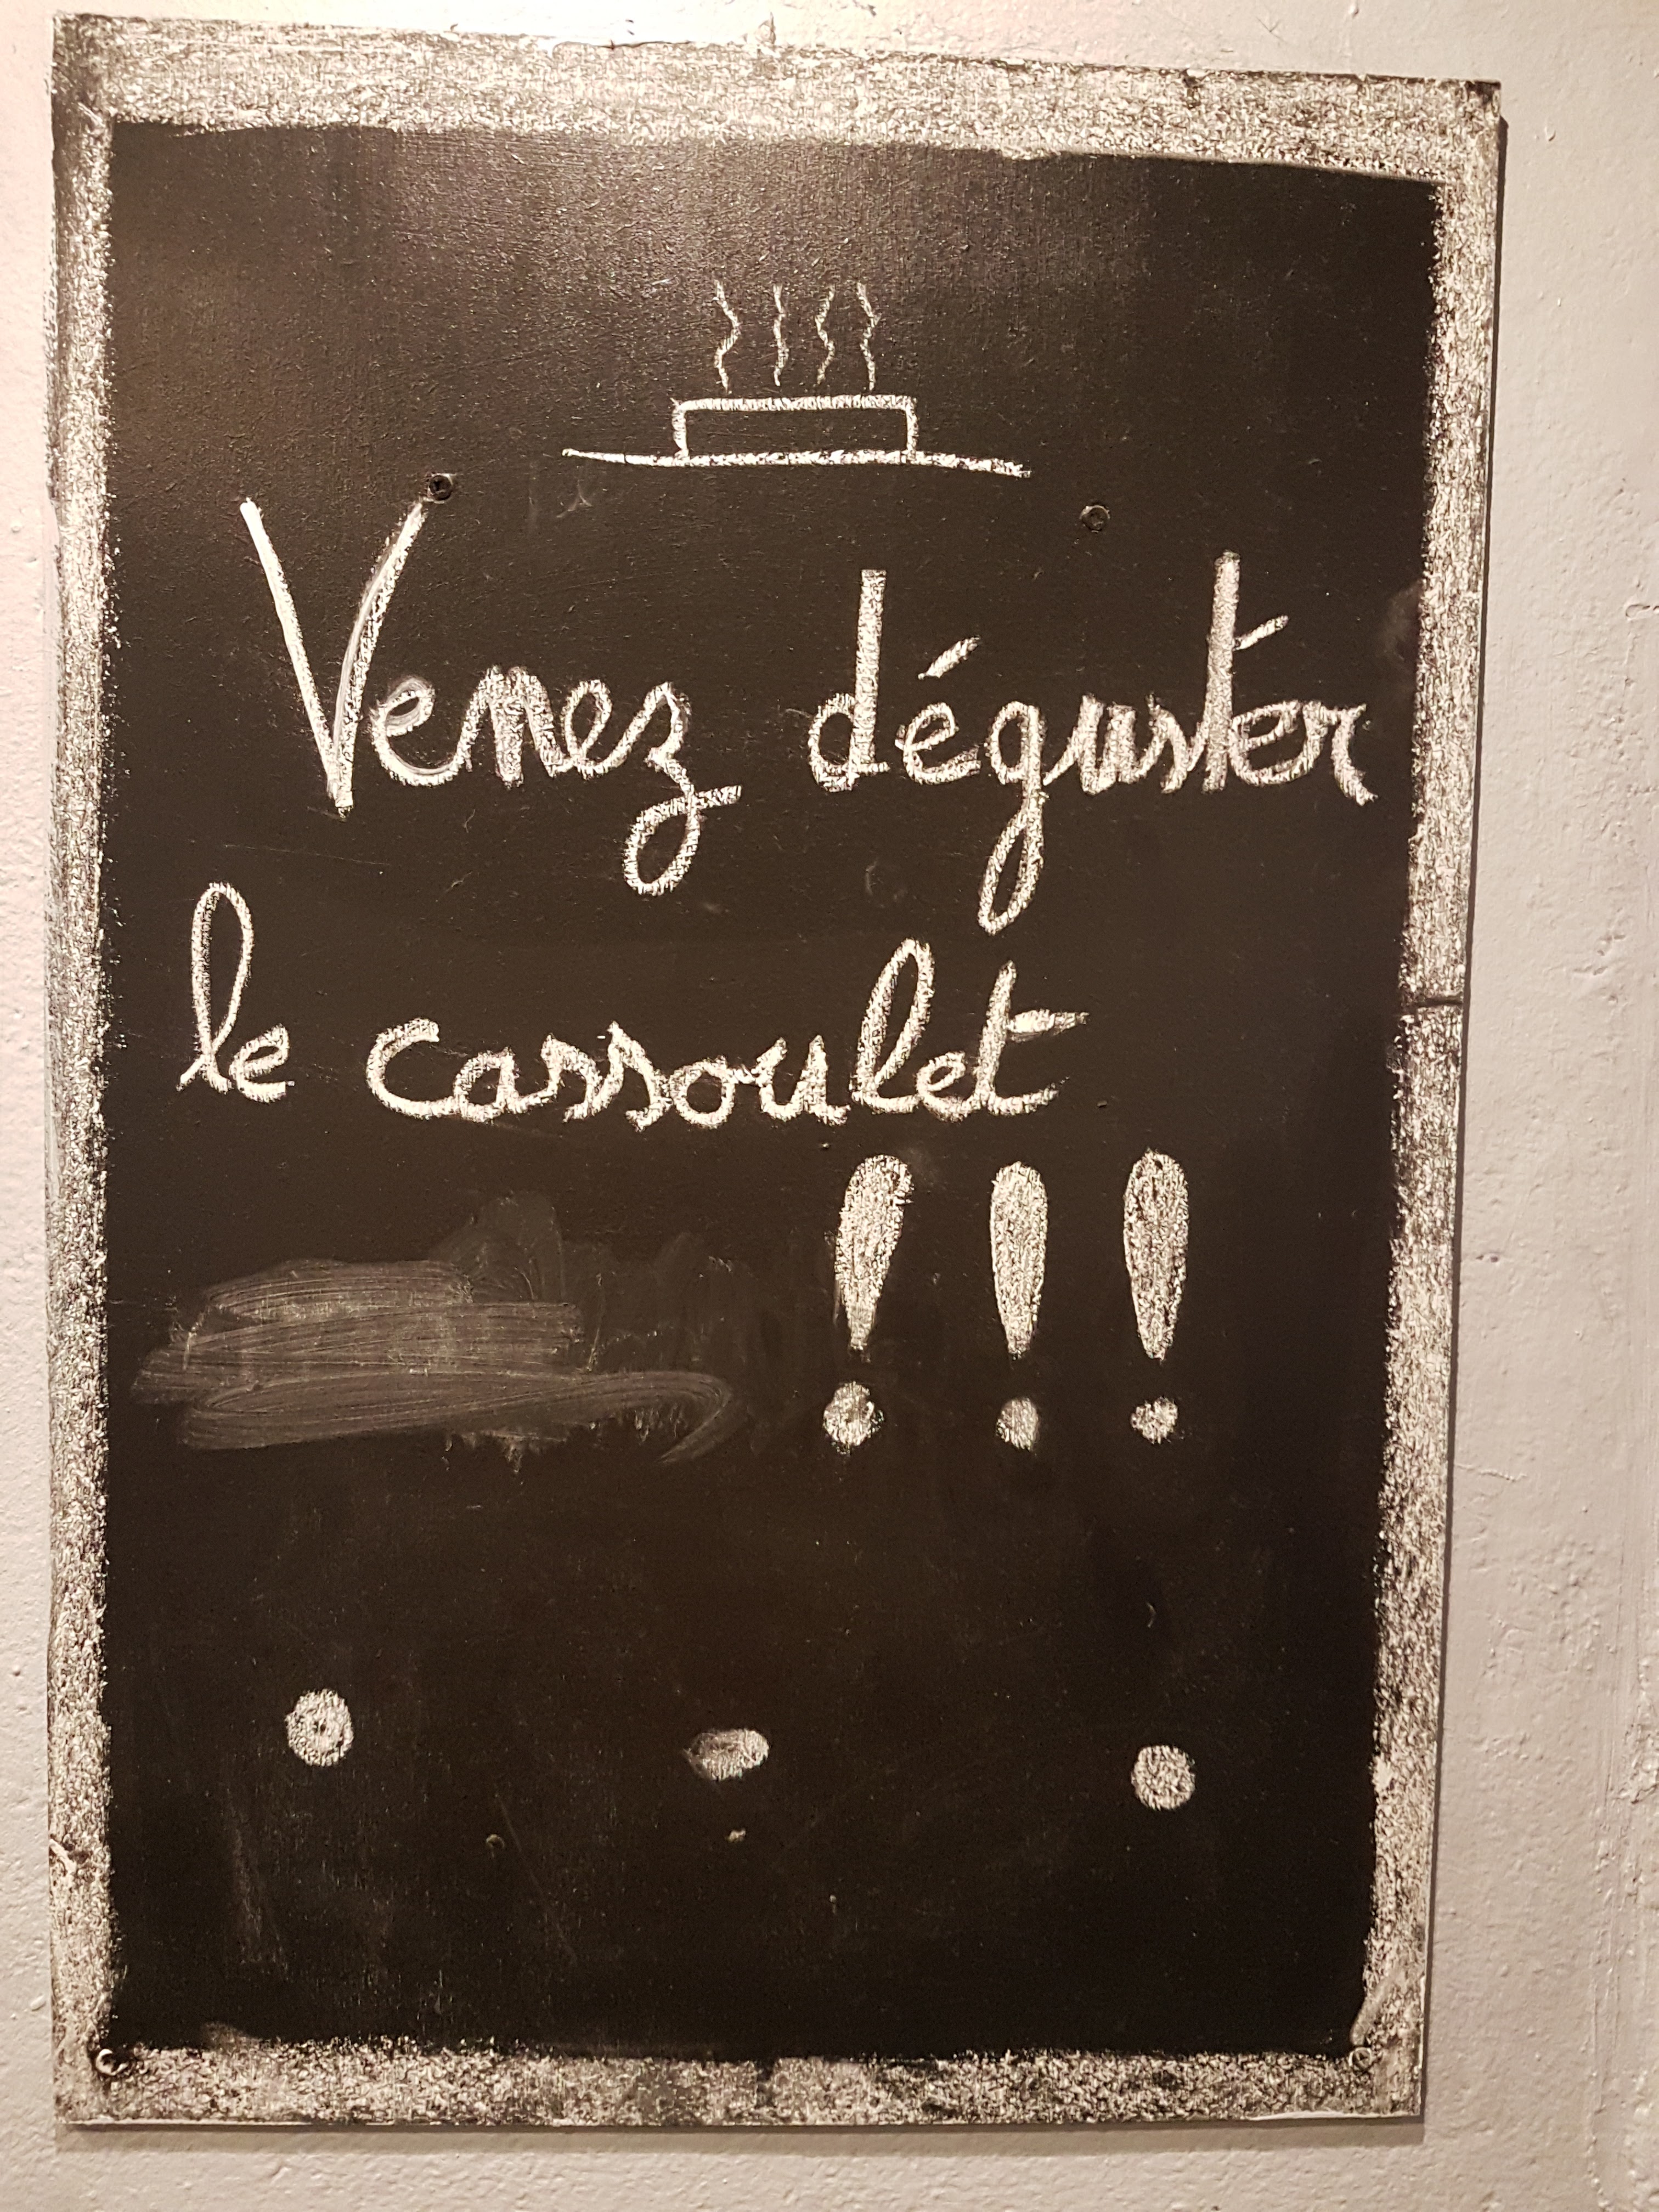 Venez déguster
le cassoulet
!!!